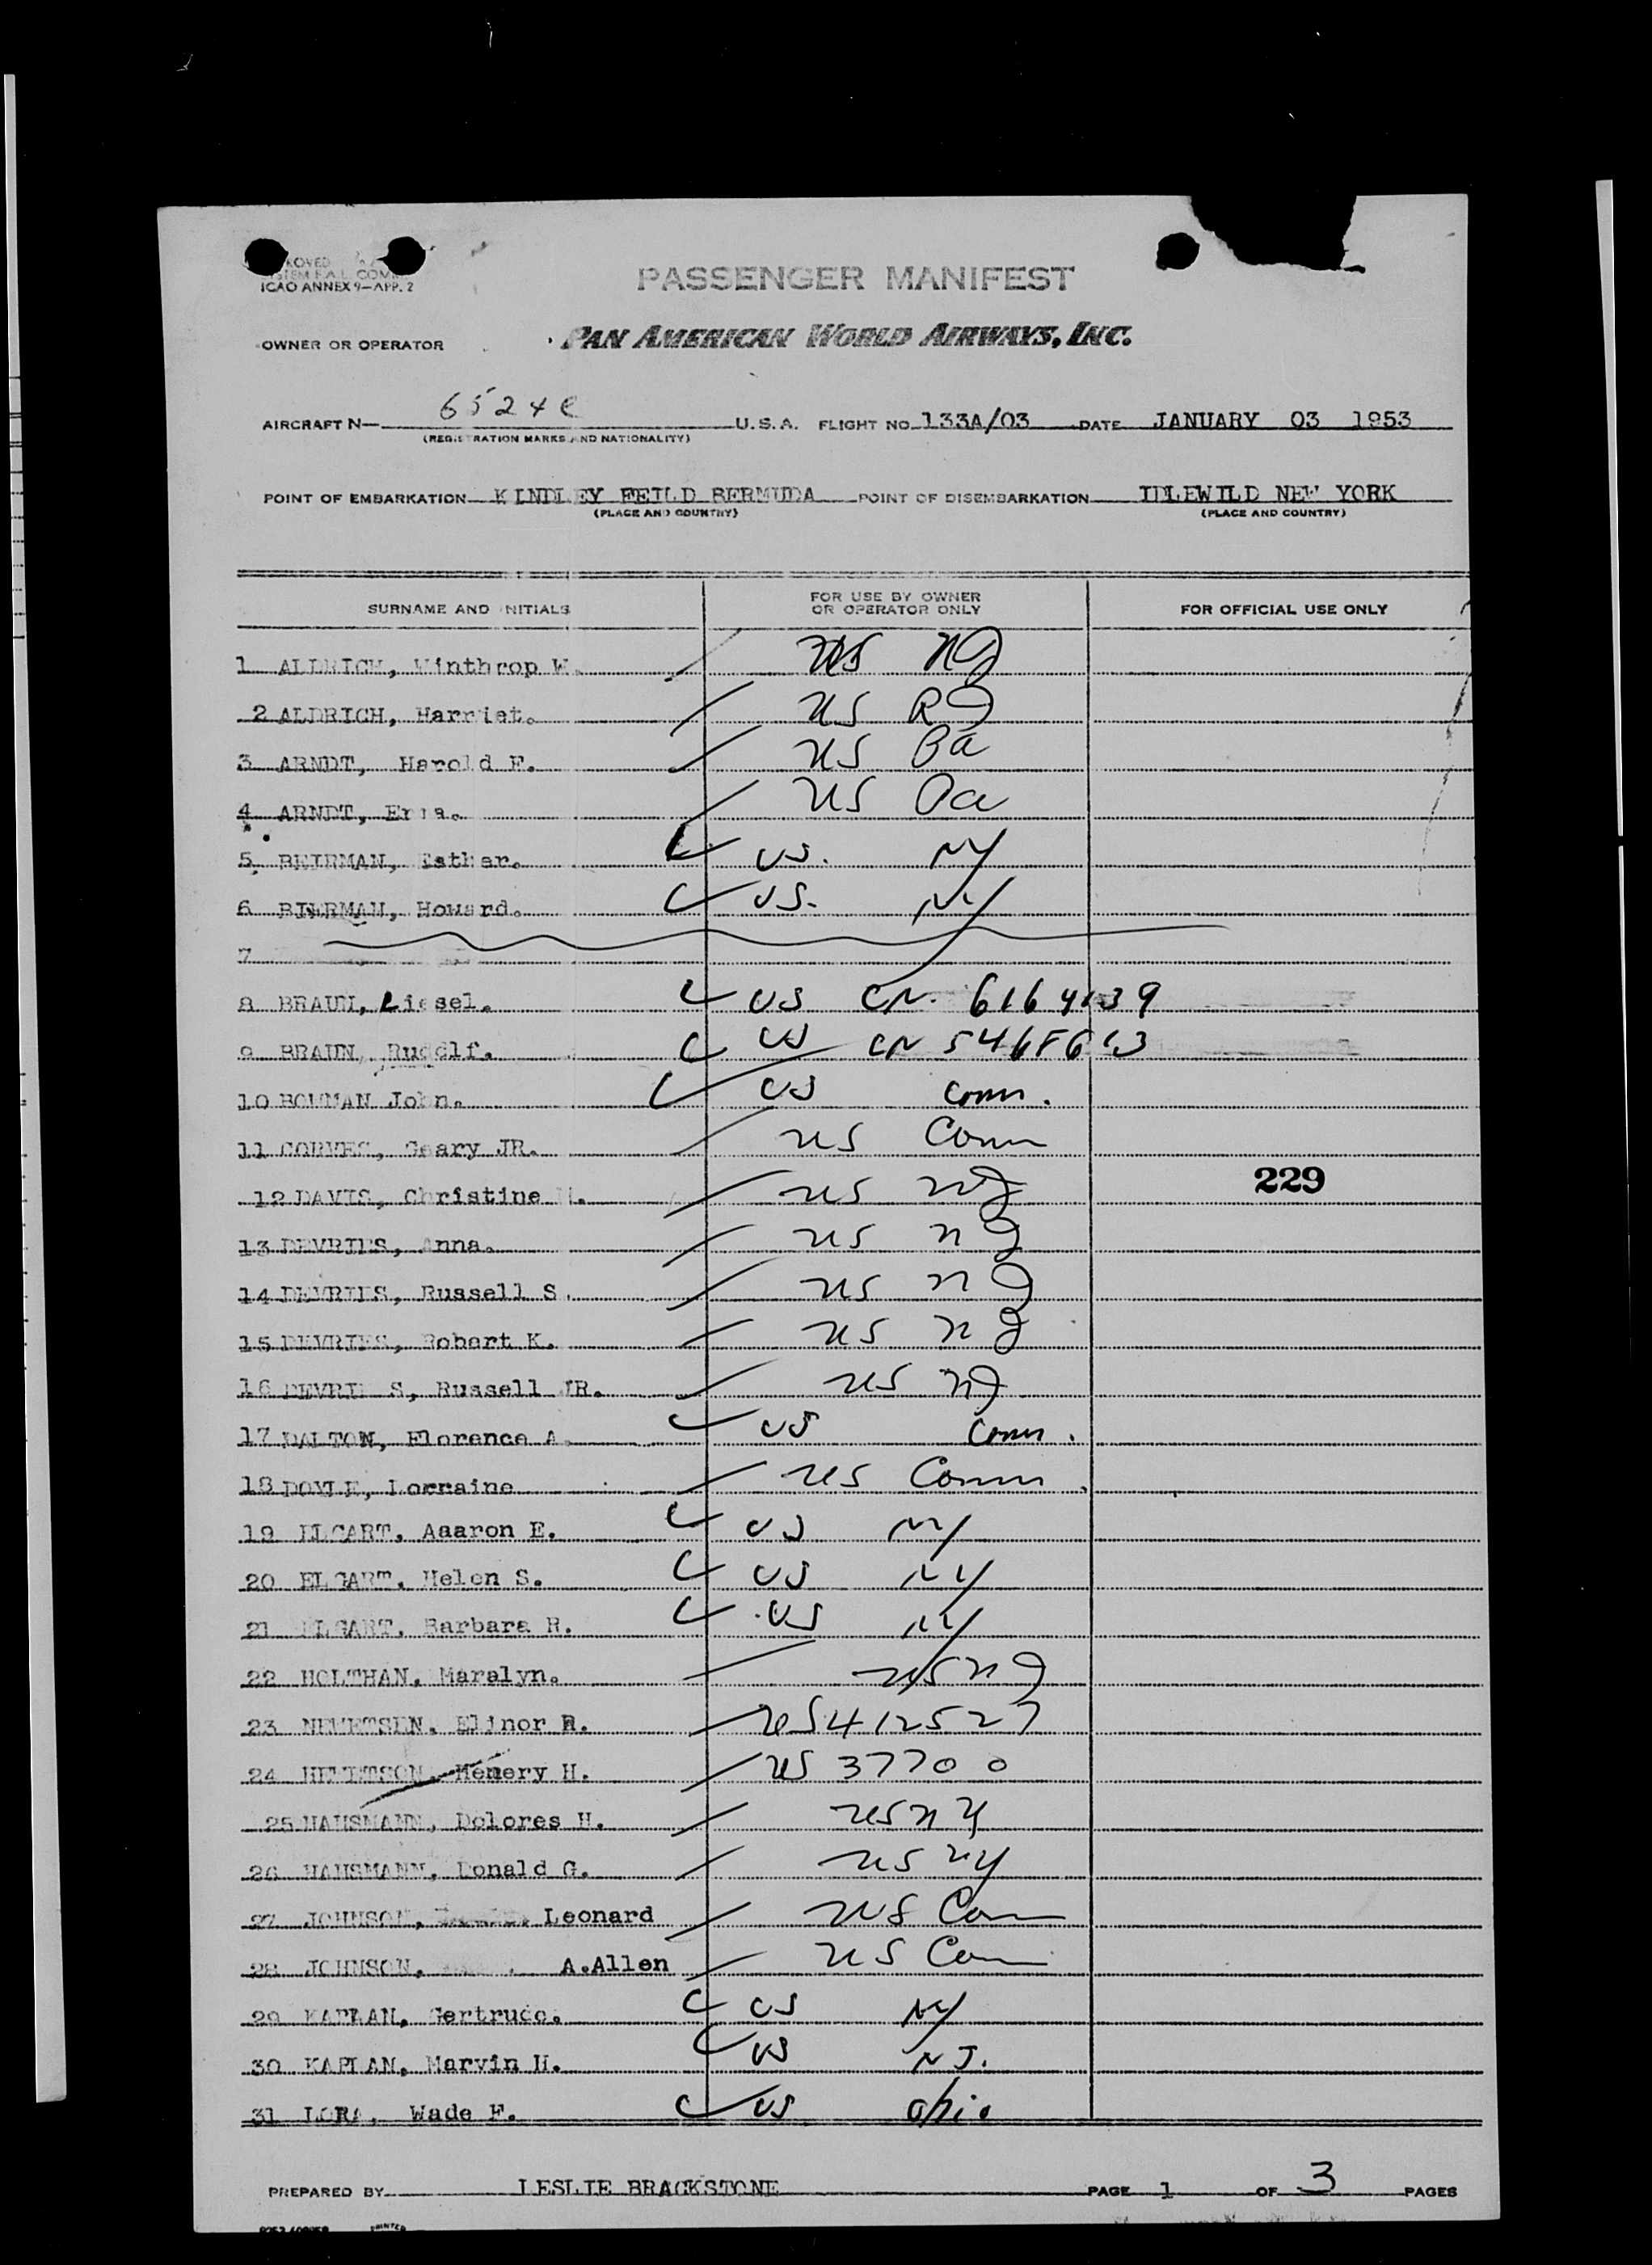 ICAO ANNEX 9—APP. 2
PASSENGER MANIFEST
OWNER OR OPERATOR PAN AMERICAN WORLD AIRWAYS, INC.
AIRCRAFT N— 6524C U.S.A. FLIGHT NO. 133A/03 DATE JANUARY 03 1953
(REGISTRATION MARKS AND NATIONALITY)
POINT OF EMBARKATION KINDLEY FEILD BERMUDA POINT OF DISEMBARKATION IDLEWILD NEW YORK
(PLACE AND COUNTRY) (PLACE AND COUNTRY)
SURNAME AND INITIALS FOR USE BY OWNER OR OPERATOR ONLY FOR OFFICIAL USE ONLY
1 ALDRICH, Winthrop W. US NJ
2 ALDRICH, Harriet. US RI
3 ARNDT, Harold F. US Pa
4 ARNDT, Erma. US Pa
5 BEIRMAN, Esther. US. NY
6 BIERMAN, Howard. US. NY
7
8 BRAUN, Liesel. US CN. 6164139
9 BRAUN, Rudolf. US CN
10 BOWMAN John. US Conn.
11 Geary JR. US Conn
12 DAVIS, Christine US NJ
13 DEVRIES, Anna. US NJ
14 DEVRIES, Russell S. US NJ
15 DEVRIES, Robert K. US NJ
16 DEVRIES, Russell JR. US NJ
17 DALTON, Florence A. US Conn.
18 DOYLE, Lorraine US Conn
19 ELGART, Aaaron E. US NY
20 ELGART, Helen S. US NY
21 ELGART, Barbara R. US NY
22 HOLTHAN, Maralyn. US NJ
23 Elinor R. US 412527
24 Henery H. US 37700
25 HAUSMANN, Dolores H. US NY
26 HAUSMANN, Donald G. US NY
27 JOHNSON, Leonard US Conn
28 JOHNSON, A.Allen US Conn
29 KAPLAN, Gertrude. US NY
30 KAPLAN, Marvin H. US NJ.
31 LORA, Wade F. US Ohio
229
PREPARED BY LESLIE BRACKSTONE PAGE 1 OF 3 PAGES